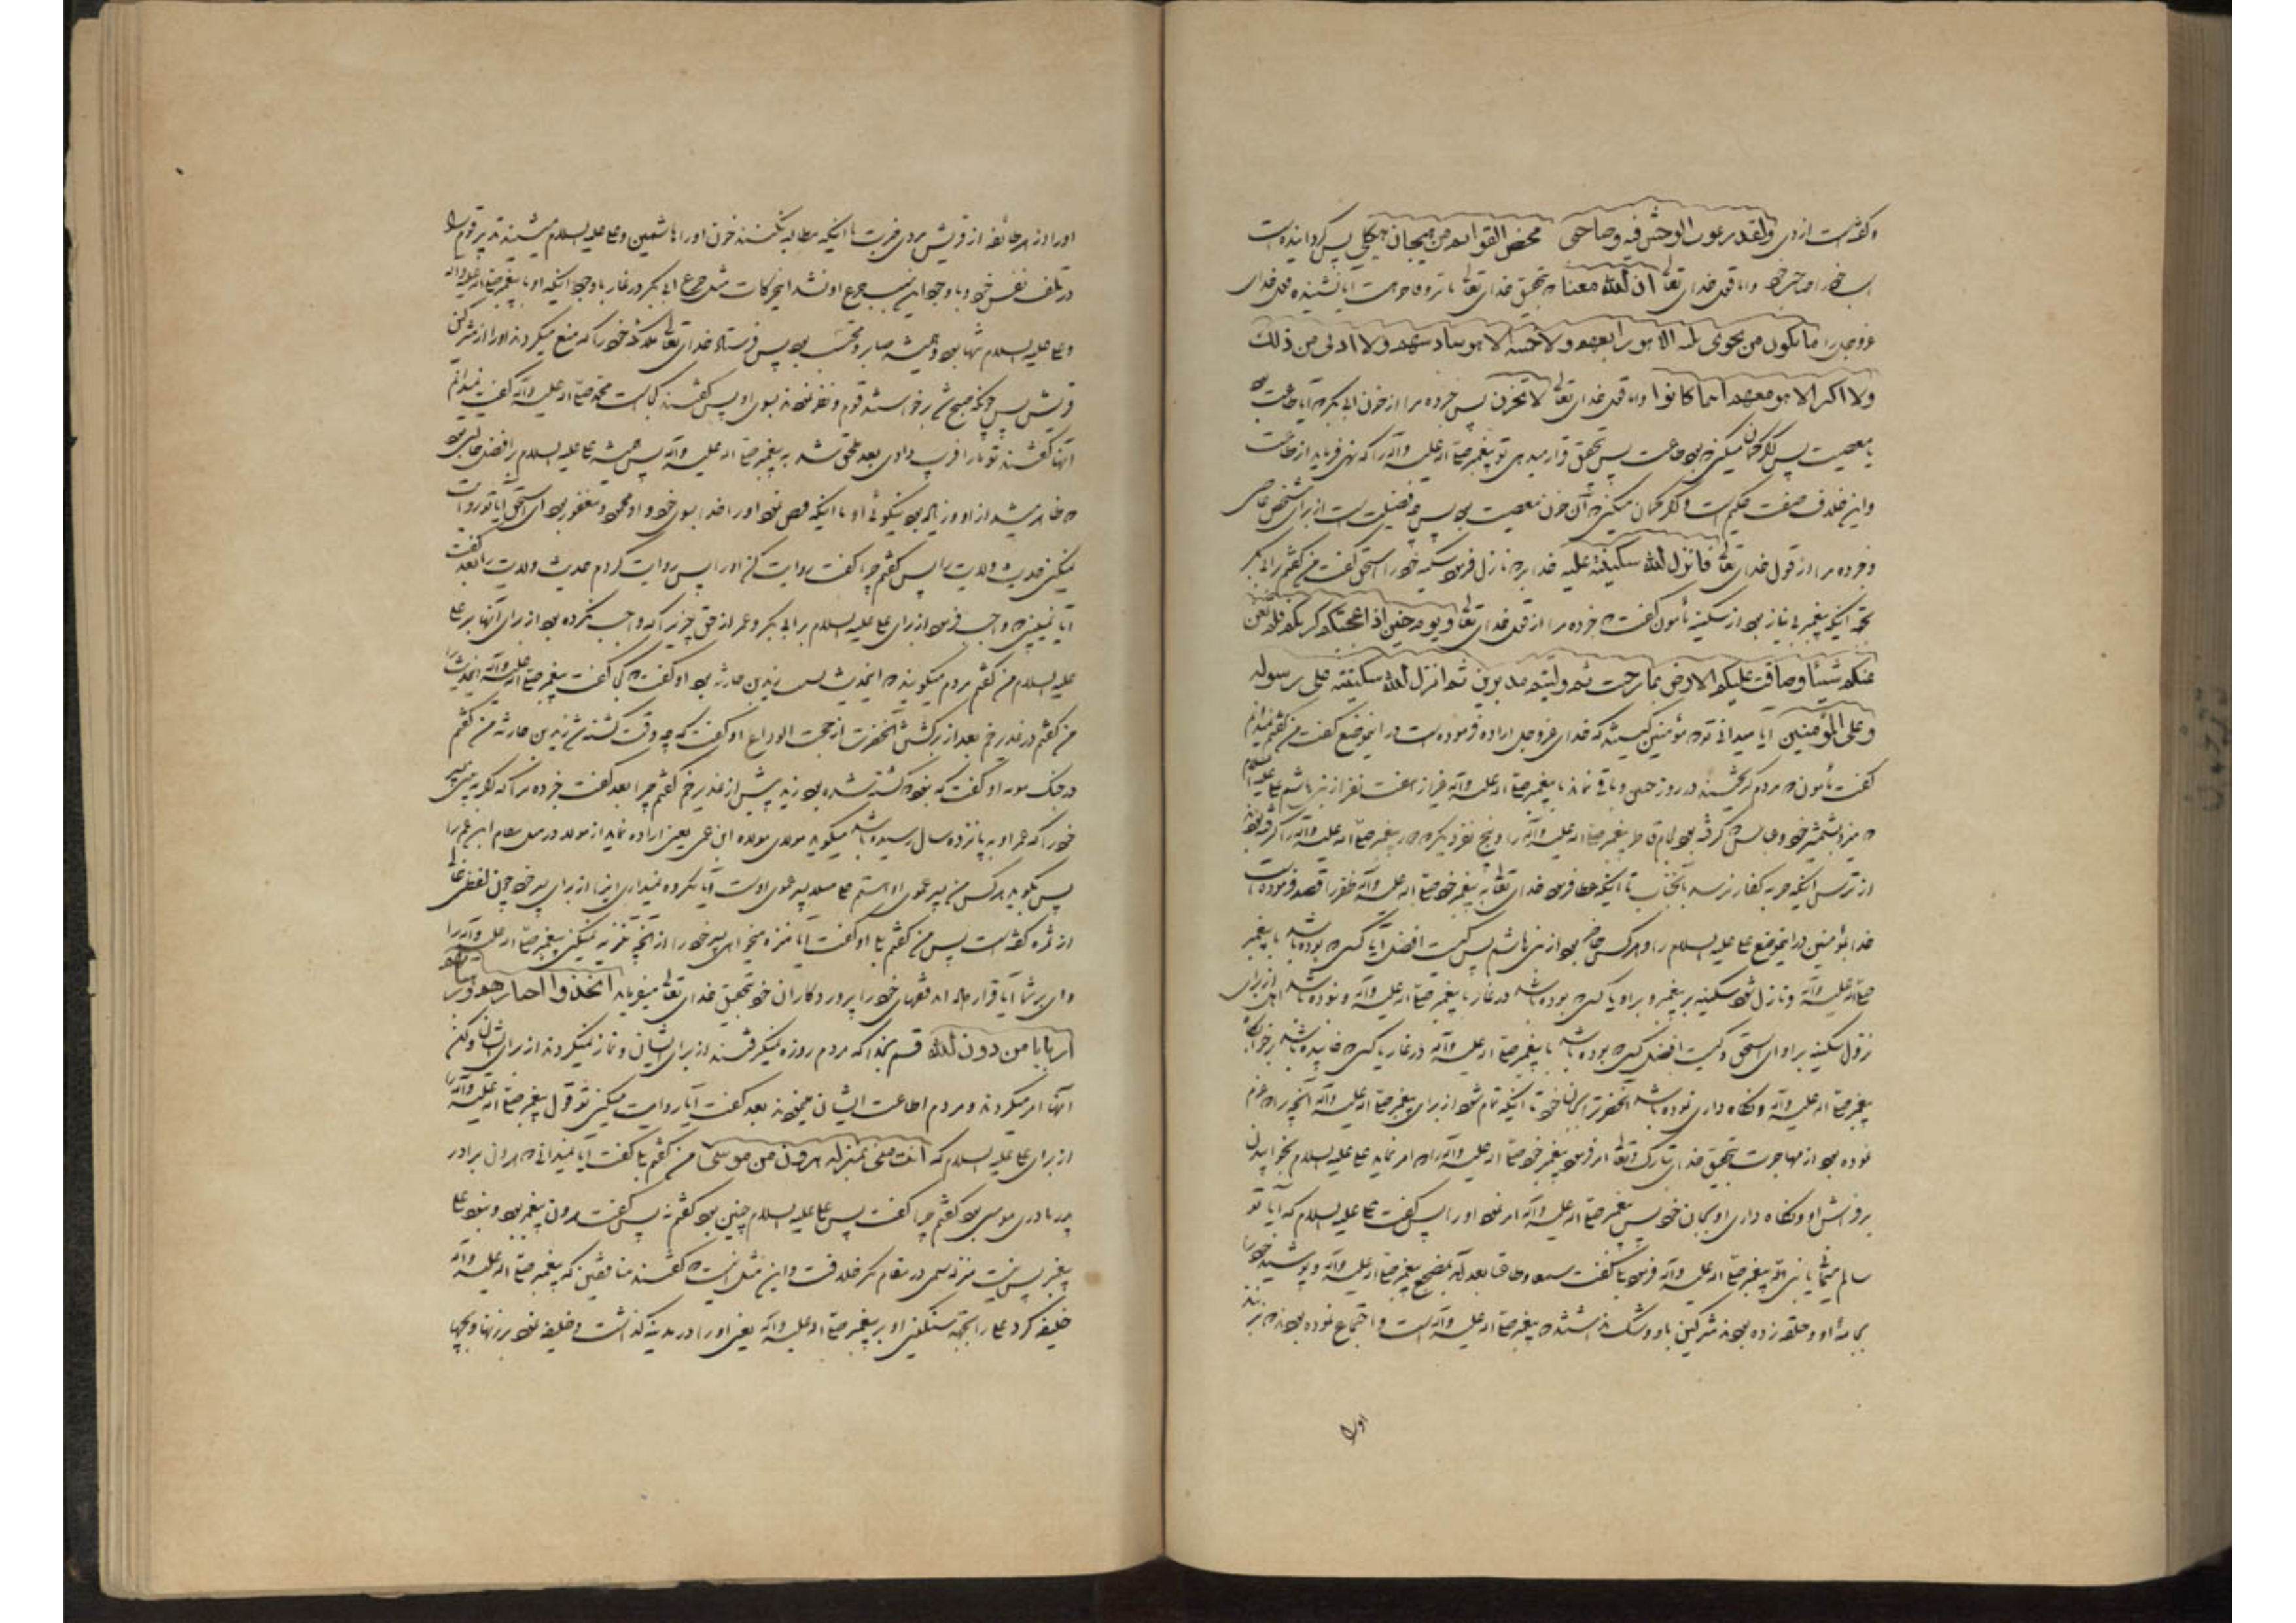 و گفته است ازدی ولقد رعوت الوحش فیه وصاحبی محض القوایم من هیجان هیکلی پس گردانیده است
اسب خود را صاحب خود و اما قول خدای تعالی ان الله معنا به تحقیق خدای تعالی با تر و فاجر است آیا نشنیده قول خدای
عزوجل را ما یکون من نجوی ثلثه الا هو رابعهم ولا خمسه الا هو سادسهم ولا ادنی من ذلک
ولا اکثر الا هو معهم اینما کانوا و اما قول خدای تعالی لا تحزن پس خبر ده مرا از حزن ابی بکر که آیا طاعت بود
یا معصیت پس اگر گمان میکنی که بود طاعت پس تحقیق قرار میدهی تو پیغمبر صلی الله علیه و آله را که نهی فرماید از طاعت
و این خلاف صفت حکیم است و اگر گمان میکنی که آن حزن معصیت بود پس چه فضیلت است از برای شخص عاصی
و خبر ده مرا از قول خدای تعالی فانزل الله سکینته علیه خدا بر که نازل فرمود سکینه خود را اسحق گفت من گفتم بر ابی بکر
بجهة اینکه پیغمبر بی نیاز بود از سکینه مأمون گفت که خبر ده مرا از قول خدای تعالی ویوم حنین اذ اعجبتکم کثرتکم فلم تغن
عنکم شیئا وضاقت علیکم الارض بما رحبت ثم ولیتم مدبرین ثم انزل الله سکینته علی رسوله
وعلی المؤمنین آیا میدانی تو که مؤمنین کیستند که خدای عزوجل اراده فرموده است در این موضع گفت من گفتم نمیدانم
گفت مأمون که مردم گریختند در روز حنین و باقی نماند با پیغمبر صلی الله علیه و آله غیر از هفت نفر از بنی هاشم علی علیه السلام
که میزد بشمشیر خود و عباس که گرفته بود لجام قاطر پیغمبر صلی الله علیه و آله را و پنج نفر دیگر که پیغمبر صلی الله علیه و آله را گرفته بودند
از ترس اینکه حربه کفار نرسد بآنجناب تا اینکه عطا فرمود خدای تعالی به پیغمبر خود صلی الله علیه و آله ظفر را قصد فرموده است
خدا بمؤمنین در این موضع علی علیه السلام را و هر کس حاضر بود از بنی هاشم پس کیست افضل آیا کسی که بوده باشد با پیغمبر
صلی الله علیه و آله و نازل شود سکینه بر پیغمبر و بر او یا کسی که بوده باشد در غار با پیغمبر صلی الله علیه و آله و نبوده باشد اهل از برای
نزول سکینه بر او ای اسحق و کیست افضل کسی که بوده باشد با پیغمبر صلی الله علیه و آله در غار یا کسی که خوابیده باشد بر خوابگاه
پیغمبر صلی الله علیه و آله و نگاه داری نموده باشد آنحضرت را بجان خود تا اینکه تمام شود از برای پیغمبر صلی الله علیه و آله آنچه را که عزم
نموده بود از مهاجرت بتحقیق خدای تبارک و تعالی امر فرمود پیغمبر خود صلی الله علیه و آله را که امر نماید علی علیه السلام بخوابیدن
بر فراش او و نگاه داری او بجان خود پس پیغمبر صلی الله علیه و آله امر نمود او را پس گفت علی علیه السلام که آیا تو
سالم میمانی یا نبی الله پیغمبر صلی الله علیه و آله فرمود بلی گفت سمعا و طاعة بعد آمد بمضجع پیغمبر صلی الله علیه و آله و پوشید خود را
بجامه او و حلقه زده بودند مشرکین باو و شک نداشتند که پیغمبر صلی الله علیه و آله است و اجتماع نموده بودند که بزنند
او را
او را از هر طائفه از قریش مردی ضربت تا اینکه مطالبه نکنند خون او را هاشمیین و علی علیه السلام میشنید تدبیر قوم را
در تلف نفس خود و با وجود این سبب جزع او نشد این حرکات مثل جزع ابی بکر در غار با وجود اینکه او با پیغمبر صلی الله علیه و آله
و علی علیه السلام تنها بود و همیشه صابر و محتسب بود پس فرستاد خدای تعالی ملائکه خود را که منع میکردند او را از مشرکین
قریش پس چونکه صبح شد برخواستند قوم و نظر نمودند بسوی او پس گفتند کجاست محمد صلی الله علیه و آله گفت نمیدانم
آنها گفتند تو ما را فریب دادی بعد ملحق شد به پیغمبر صلی الله علیه و آله پس همیشه علی علیه السلام بر افضل حالتی بود
که ظاهر میشد از او و زیاد بود نیکوئی او تا اینکه قبض نمود او را خدا بسوی خود و او محمود و مغفور بود ای اسحق آیا تو روایت
نمیکنی حدیث ولایت را پس گفتم چرا گفت روایت کن او را پس روایت کردم حدیث ولایت را بعد گفت
آیا نمیبینی که واجب فرمود از برای علی علیه السلام بر ابی بکر و عمر از حق چیزی را که واجب نکرده بود از برای آنها بر علی
علیه السلام من گفتم مردم میگویند که این حدیث بسبب زید بن حارثه بود او گفت که کی گفت پیغمبر صلی الله علیه و آله این حدیث را
من گفتم در غدیر خم بعد از برگشتن آنحضرت از حجت الوداع او گفت که چه وقت کشته شد زید بن حارثه من گفتم
در جنگ موته او گفت که نبود که کشته شده بود زید پیش از غدیر خم گفتم چرا بعد گفت خبر ده مرا که اگر به بینی پسر
خود را که عمر او به پانزده سال رسیده باشد میگوید مولای مولاه ابن عمی یعنی اراده نماید از مولا در مقام ابن عم را
پس بگوید هر کس من پسر عموی او هستم علی پسر عموی اوست آیا مکروه نمیداری اینرا از برای پسر خود چون لفظی
از تو گفته است پس من گفتم بلی او گفت آیا منزه میخواهی پسر خود را از آنچه تنزیه نمیکنی پیغمبر صلی الله علیه و آله را
وای بر شما آیا قرار داده اید فقهای خود را پروردگاران خود تحقیق خدای تعالی میفرماید اتخذوا احبارهم ورهبانهم
اربابا من دون الله قسم بخدا که مردم روزه نمیگرفتند از برای ایشان و نماز نمیکردند از برای ایشان ولکن
آنها امر میکردند و مردم اطاعت ایشان مینمودند بعد گفت آیا روایت میکنی تو قول پیغمبر صلی الله علیه و آله را
از برای علی علیه السلام که انت منی بمنزلة هرون من موسی من گفتم بلی گفت آیا نمیدانی که هرون برادر
پدر مادری موسی بود گفتم چرا گفت پس علی علیه السلام چنین بود گفتم نه پس گفت هرون پیغمبر بود و نبود علی
پیغمبر پس نیست منزله سیمی در مقام مگر خلافت و این مثل آنست که گفتند منافقین که پیغمبر صلی الله علیه و آله
خلیفه کرد علی را بجهة سنگینی او بر پیغمبر صلی الله علیه و آله یعنی او را در مدینه گذاشت و خلیفه نمود بر زنها و بچها